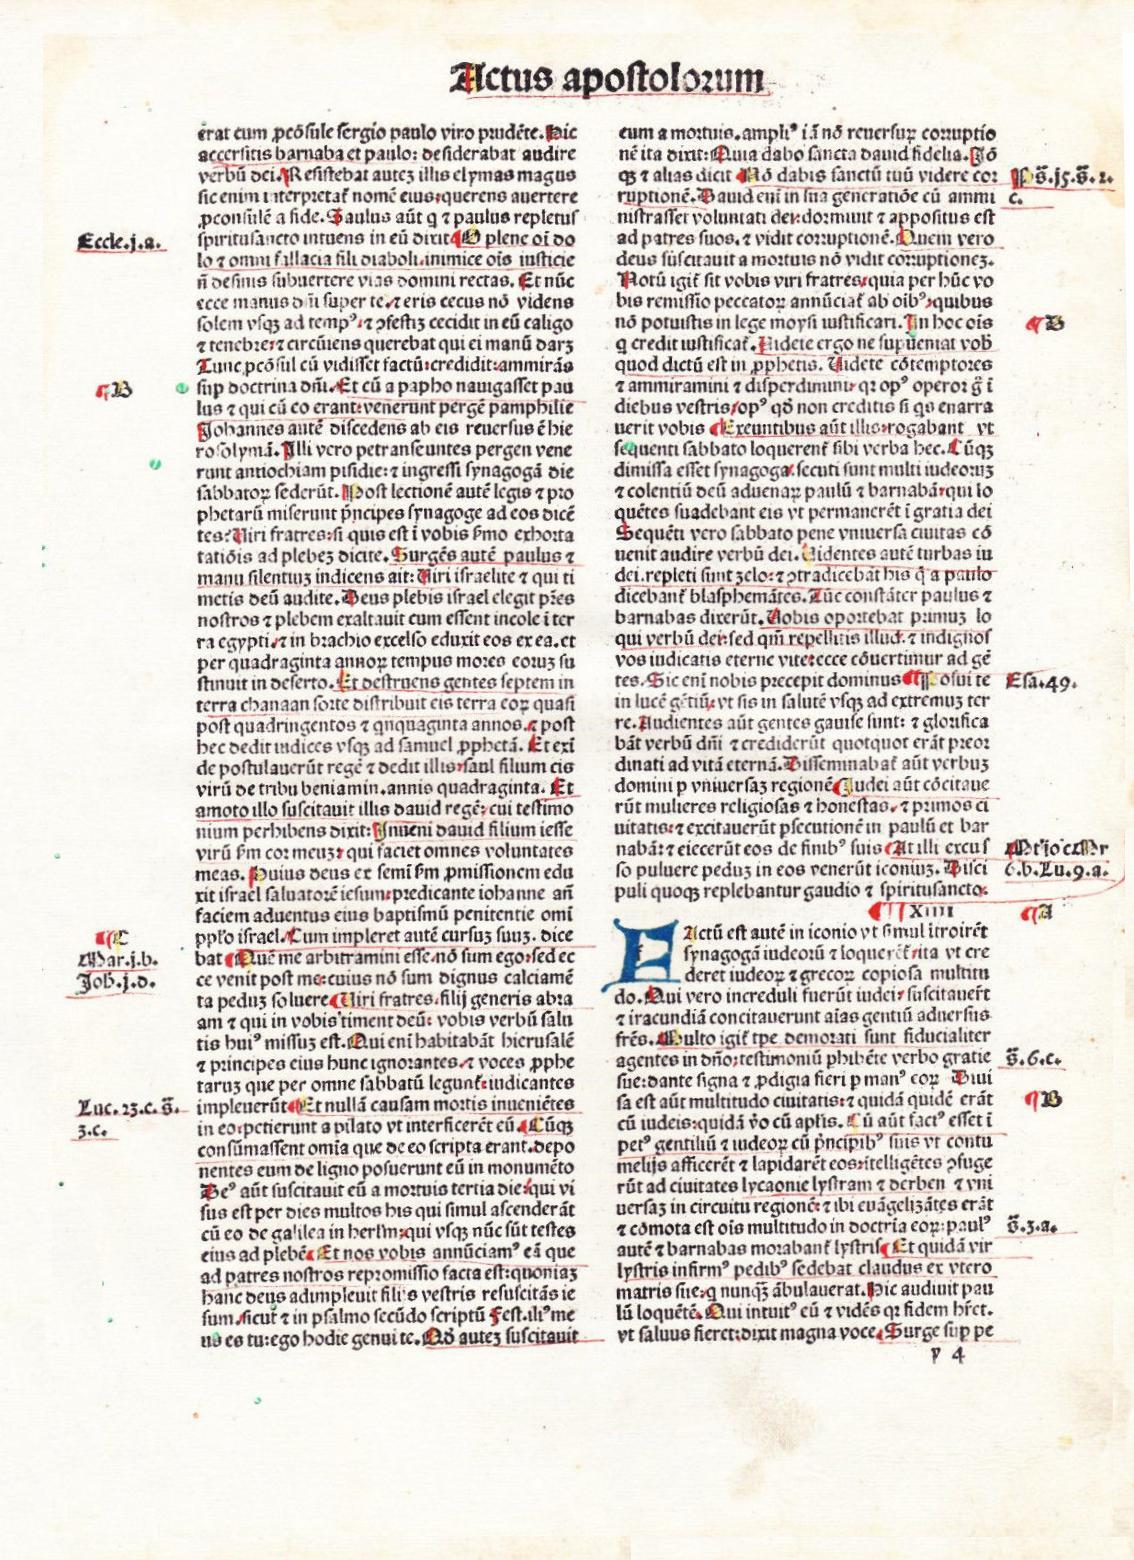 Actus apostolorum
erat cum ꝓcōsule sergio paulo viro prudēte. Hic
accersitis barnaba et paulo: desiderabat audire
verbū dei. Resistebat autez illis elymas magus
sic enim interpretat᷑ nomē eius: querens auertere
ꝓconsulē a fide. Saulus aūt q ⁊ paulus repletus
Eccle.j.a.
spiritusancto intuens in eū dixit O plene oī do
lo ⁊ omni fallacia fili diaboli. inimice oīs iusticie
n̄ desinis subuertere vias domini rectas. Et nūc
ecce manus dn̄i super te. ⁊ eris cecus nō videns
solem vsqꝫ ad tempꝰ. ⁊ ꝯfestiꝫ cecidit in eū caligo
⁊ tenebre: ⁊ circūiens querebat qui ei manū darꝫ
Tunc ꝓcōsul cū vidisset factū: credidit: ammirās
¶ B
sup doctrina dn̄i. Et cū a papho nauigasset pau
lus ⁊ qui cū eo erant: venerunt pergē pamphilie
Johannes autē discedens ab eis reuersus ē hie
rosolymā. Illi vero petranseuntes pergen vene
runt antiochiam pisidie: ⁊ ingressi synagogā die
sabbatoꝝ sederūt. Post lectionē autē legis ⁊ pro
phetarū miserunt p̄ncipes synagoge ad eos dicē
tes: Viri fratres: si quis est ī vobis s̄mo exhorta
tatiōis ad plebeꝫ dicite. Surgēs autē paulus ⁊
manu silentiuꝫ indicens ait: Viri israelite ⁊ qui ti
metis deū audite. Deus plebis israel elegit pr̄es
nostros ⁊ plebem exaltauit cum essent incole ī ter
ra egypti. ⁊ in brachio excelso eduxit eos ex ea. et
per quadraginta annoꝝ tempus mores eoruꝫ su
stinuit in deserto. Et destruens gentes septem in
terra chanaan sorte distribuit eis terra eoꝝ quasi
post quadringentos ⁊ qnquaginta annos. ⁊ post
hec dedit iudices vsqꝫ ad samuel ꝓphetā. Et exī
de postulauerūt regē ⁊ dedit illis: saul filium cis
virū de tribu beniamin. annis quadraginta. Et
amoto illo suscitauit illis dauid regē: cui testimo
nium perhibens dixit: Inueni dauid filium iesse
virū s̄m cor meuꝫ: qui faciet omnes voluntates
meas. Huius deus ex semi s̄m ꝓmissionem edu
xit israel saluatorē iesum: predicante iohanne añ
faciem aduentus eius baptismū penitentie omī
¶ C
pplo israel. Cum impleret autē cursuꝫ suuꝫ. dice
Mar.j.b.
bat Quē me arbitramini esse. nō sum ego: sed ec
Joh.j.d.
ce venit post me: cuius nō sum dignus calciamē
ta peduꝫ soluere Viri fratres. filij generis abra
am ⁊ qui in vobis timent deū: vobis verbū salu
tis huiꝰ missuꝫ est. Qui enī habitabāt hierusalē
⁊ principes eius hunc ignorantes. ⁊ voces ꝓphe
taruꝫ que per omne sabbatū legunt᷑: iudicantes
Luc.23.c. S̄.
impleuerūt Et nullā causam mortis inueniētes
3.c.
in eo: petierunt a pilato vt interficerēt eū. Cūqꝫ
consūmassent omīa que de eo scripta erant. depo
nentes eum de ligno posuerunt eū in monumēto
Deꝰ aūt suscitauit eū a mortuis tertia die: qui vi
sus est per dies multos his qui simul ascenderāt
cū eo de galilea in herl̄m: qui vsqꝫ nūc sūt testes
eius ad plebē Et nos vobis annūciamꝰ eā que
ad patres nostros repromissio facta est: quoniaꝫ
hanc deus adimpleuit filiis vestris resuscitās ie
sum. sicut ⁊ in psalmo secūdo scriptū est. filiꝰ me
us es tu: ego hodie genui te. Qd̄ auteꝫ suscitauit
eum a mortuis. ampliꝰ iā nō reuersuꝝ corruptio
nē ita dixit: Quia dabo sancta dauid fidelia. Iō
qꝫ ⁊ alias dicit Nō dabis sanctū tuū videre cor
ruptionē. Dauid enī in sua generatiōe cū ammi
c.
nistrasset voluntati dei. dormiuit ⁊ appositus est
ad patres suos. ⁊ vidit corruptionē. Quem vero
deus suscitauit a mortuis nō vidit corruptioneꝫ.
Notū igit᷑ sit vobis viri fratres: quia per hūc vo
bis remissio peccatoꝝ annūciat᷑ ab oībꝰ: quibus
nō potuistis in lege moysi iustificari. In hoc oīs
¶ D
q credit iustificat᷑. Videte ergo ne supueniat vob̄
quod dictū est in ꝓphetis. Videte cōtemptores
⁊ ammiramini ⁊ disperdimini: qr opꝰ operor g̃ ī
diebus vestris: opꝰ qd̄ non creditis si qs enarra
uerit vobis Exeuntibus aūt illis: rogabant vt
sequenti sabbato loquerent᷑ sibi verba hec. Cūqꝫ
dimissa esset synagoga. secuti sunt multi iudeoruꝫ
⁊ colentiū deū aduenaꝝ paulū ⁊ barnabā: qui lo
quētes suadebant eis vt permanerēt ī gratia dei
Sequēti vero sabbato pene vniuersa ciuitas cō
uenit audire verbū dei. Videntes autē turbas iu
dei. repleti sunt zelo: ⁊ ꝯtradicebāt his q̄ a paulo
dicebant᷑ blasphemātes. Tūc constāter paulus ⁊
barnabas dixerūt. Vobis oportebat primuꝫ lo
qui verbū dei: sed qm̄ repellitis illud. ⁊ indignos
vos iudicatis eterne vite: ecce cōuertimur ad gē
tes. Sic enī nobis precepit dominus Posui te
Esa.49.
in lucē gētiū: vt sis in salutē vsqꝫ ad extremuꝫ ter
re. Audientes aūt gentes gauise sunt: ⁊ glorifica
bāt verbū dn̄i ⁊ crediderūt quotquot erāt preor
dinati ad vitā eternā. Disseminabat᷑ aūt verbuꝫ
domini p vniuersaꝫ regionē Judei aūt cōcitaue
rūt mulieres religiosas ⁊ honestas. ⁊ primos ci
uitatis: ⁊ excitauerūt ꝑsecutionē in paulū et bar
nabā: ⁊ eiecerūt eos de finibꝰ suis At illi excus
so puluere peduꝫ in eos venerūt iconiuꝫ. Disci
6.b.Lu.9.a.
puli quoqꝫ replebantur gaudio ⁊ spiritusancto.
¶ XIIII
¶ A
Factū est autē in iconio vt simul ītroirēt
synagogā iudeorū ⁊ loquerēt᷑: ita vt cre
deret iudeoꝝ ⁊ grecoꝝ copiosa multitu
do. Qui vero increduli fuerūt iudei: suscitauer̄t
⁊ iracundiā concitauerunt aīas gentiū aduersus
fr̄es. Multo igit᷑ tpe demorati sunt fiducialiter
agentes in dn̄o: testimoniū phibēte verbo gratie
S̄.6.c.
sue: dante signa ⁊ ꝓdigia fieri p manꝰ eoꝝ Diui
sa est aūt multitudo ciuitatis: ⁊ quidā quidē erāt
¶ B
cū iudeis: quidā v̄o cū apl̄is. Cū aūt factꝰ esset ī
petꝰ gentiliū ⁊ iudeoꝝ cū p̄ncipibꝰ suis vt contu
melijs afficerēt ⁊ lapidarēt eos: ītelligētes ꝯfuge
rūt ad ciuitates lycaonie lystram ⁊ derben ⁊ vni
uersaꝫ in circuitu regionē: ⁊ ibi euāgelizātes erāt
⁊ cōmota est oīs multitudo in doctria eoꝝ: paulꝰ
S̄.3.a.
autē ⁊ barnabas morabant᷑ lystris Et quidā vir
lystris infirmꝰ pedibꝰ sedebat claudus ex vtero
matris sue: q nunqꝫ̄ ābulauerat. Hic audiuit pau
lū loquētē. Qui intuitꝰ eū ⁊ vidēs qꝛ fidem hr̄et.
vt saluus fieret: dixit magna voce. Surge sup pe
v 4